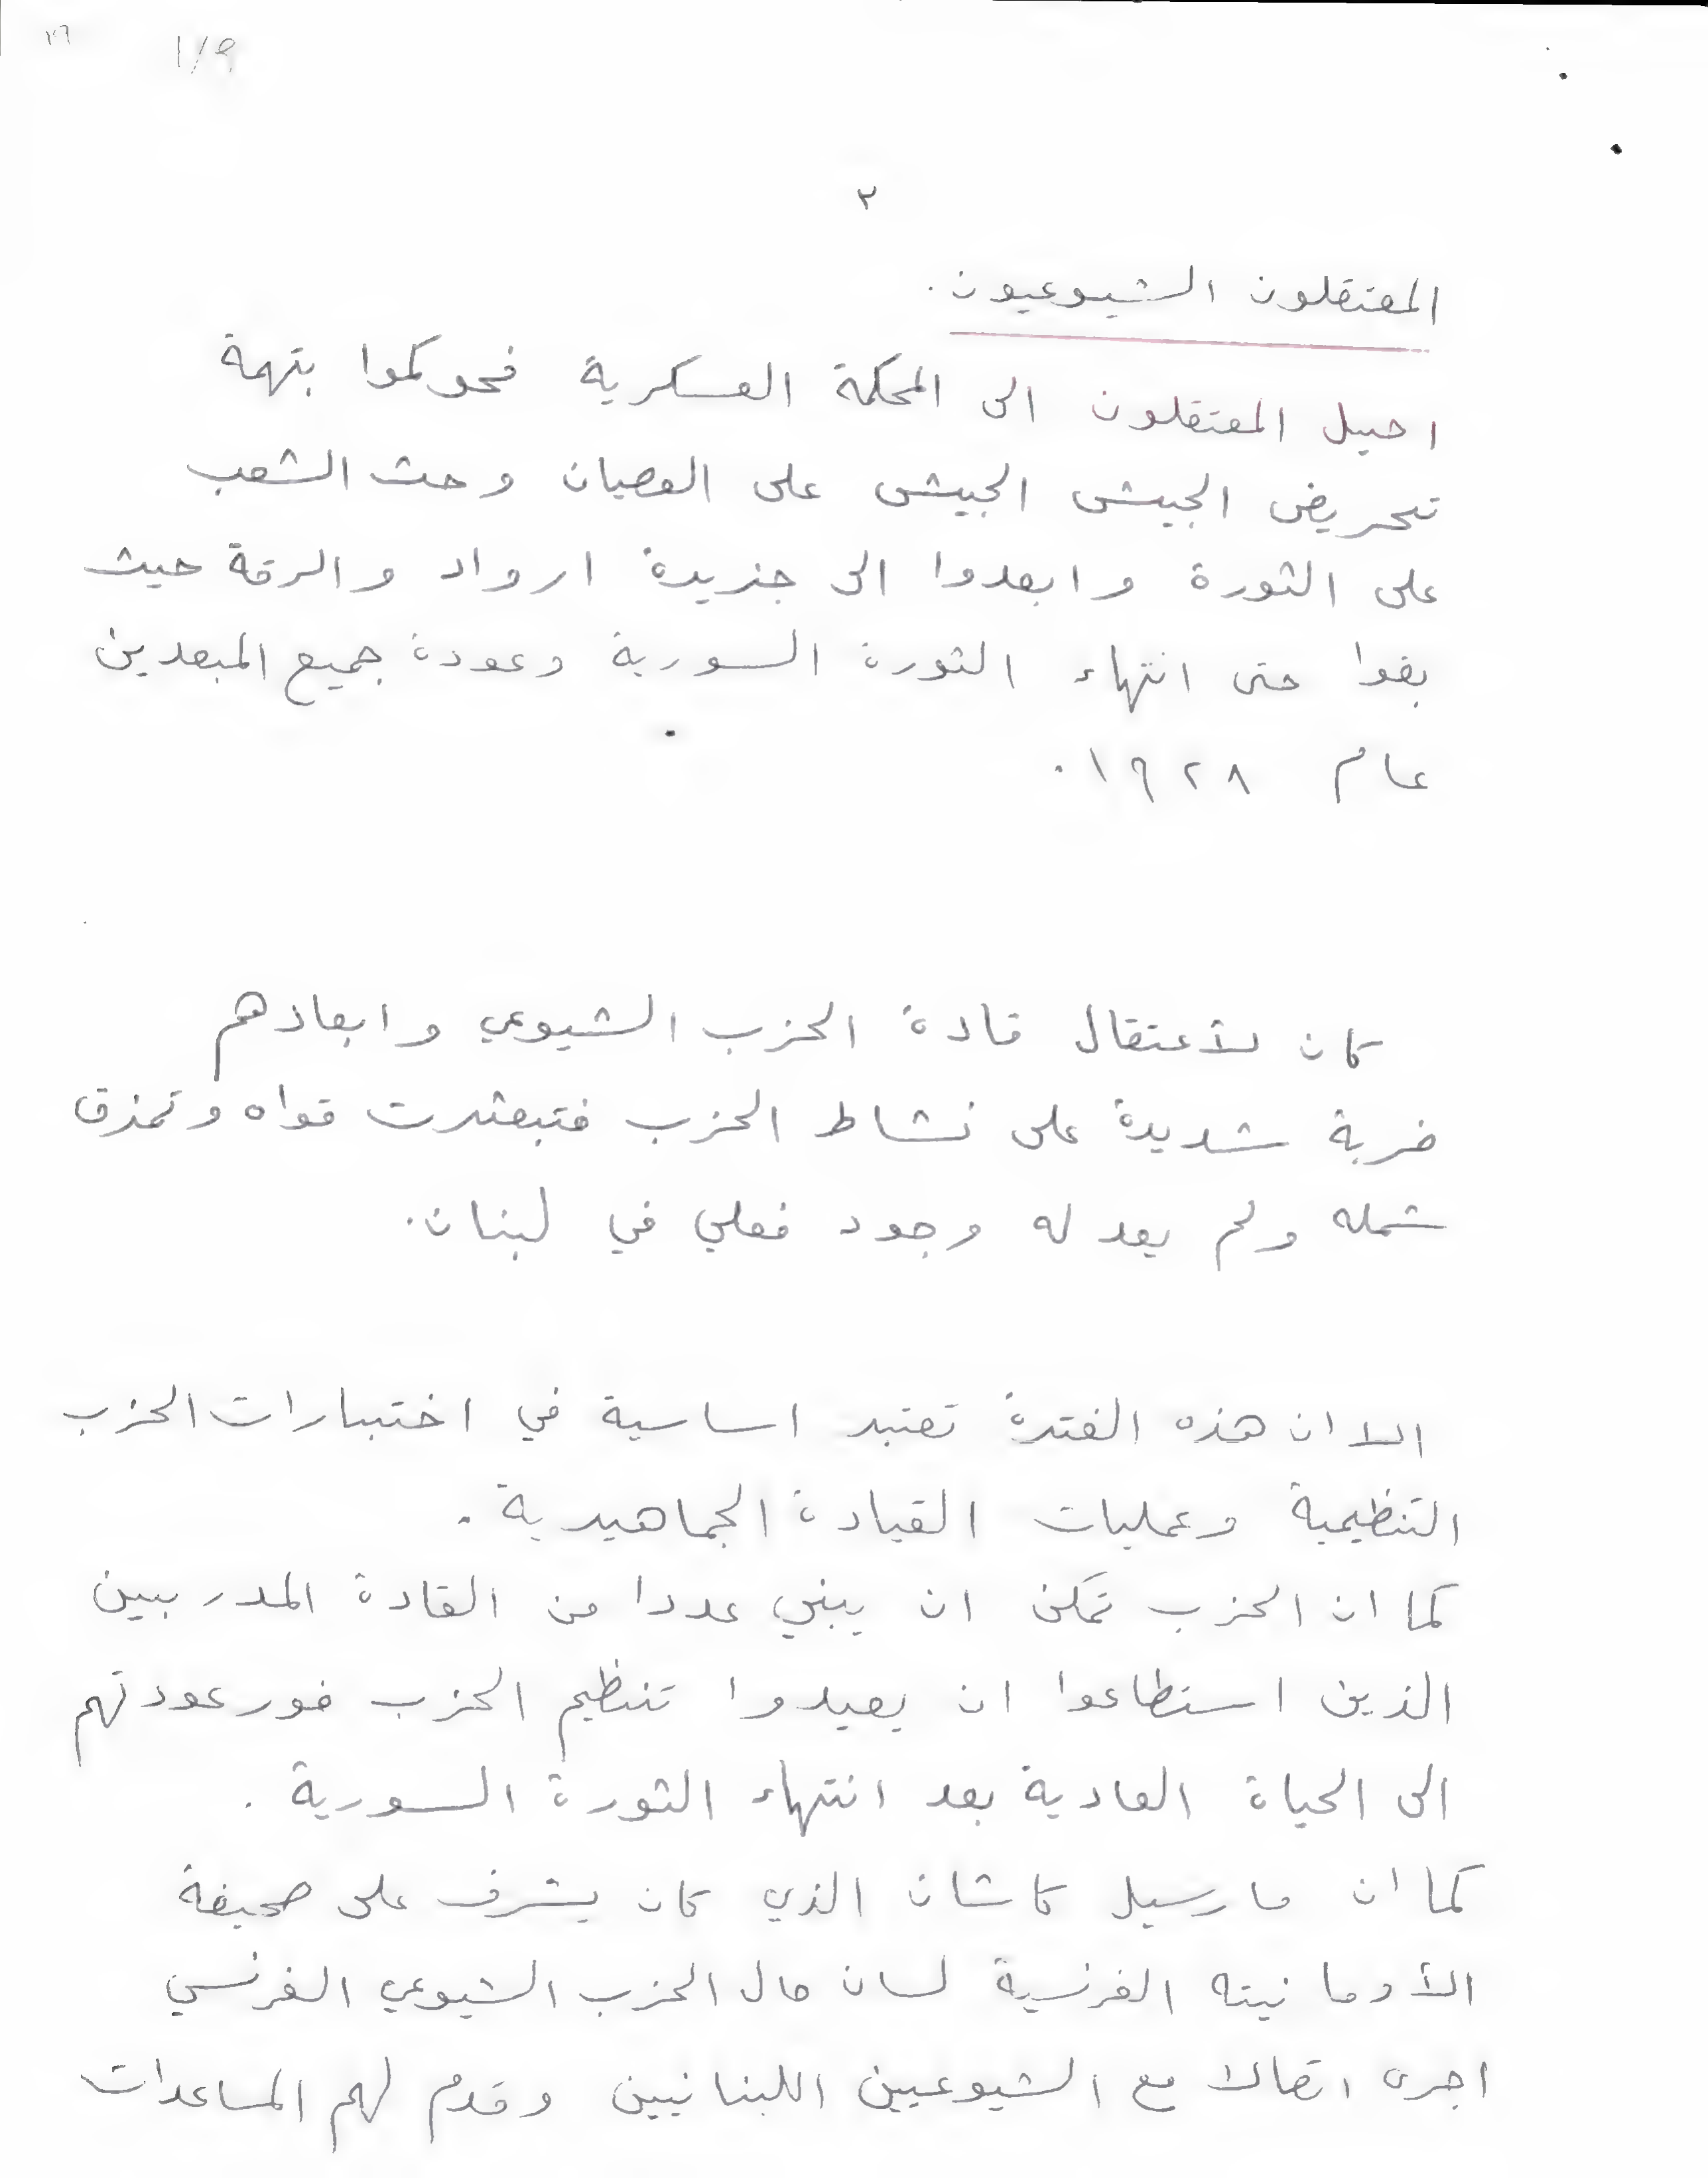 ٢٦
١/٩
٢
المعتقلون الشيوعيون.
احيل المعتقلون الى المحكمة العسكرية فحوكموا بتهمة
تحريض الجيش الجيش على العصيان وحث الشعب
على الثورة وابعدوا الى جزيرة ارواد والرقة حيث
بقوا حتى انتهاء الثورة السورية وعودة جميع المبعدين
عام ١٩٢٨.
كان لأعتقال قادة الحزب الشيوعي وابعادهم
ضربة شديدة على نشاط الحزب فتبعثرت قواه وتمزق
شمله ولم يعد له وجود فعلي في لبنان.
الا ان هذه الفترة تعتبر اساسية في اختبارات الحزب
التنظيمية وعمليات القيادة الجماهيرية.
كما ان الحزب تمكن ان يبني عددا من القادة المدربين
الذين استطاعوا ان يعيدوا تنظيم الحزب فور عودتهم
الى الحياة العادية بعد انتهاء الثورة السورية.
كما ان مارسيل كاشان الذي كان يشرف على صحيفة
الأومانيته الفرنسية لسان حال الحزب الشيوعي الفرنسي
اجرى اتصالا مع الشيوعيين اللبنانيين وقدم لهم المساعدات